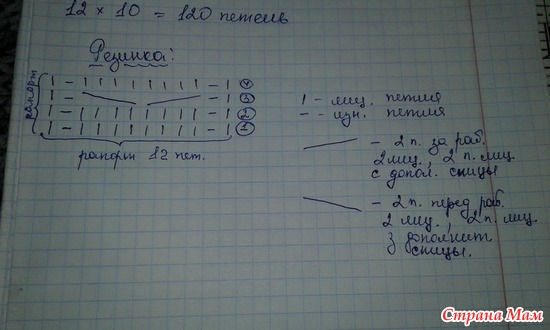 12 × 10 = 120 петель
Резинка:
рапорт
| - | | | | | | | | - | ④
| - - | ③
| - | | | | | | | | - | ②
| - | | | | | | | | - | ①
рапорт 12 пет.
| - лиц. петля
- - изн. петля
- 2 п. за раб.
2 лиц., 2 п. лиц
с допол. спицы
- 2 п. перед раб.
2 лиц., 2 п. лиц
з дополнит
спицы.
Страна Мам